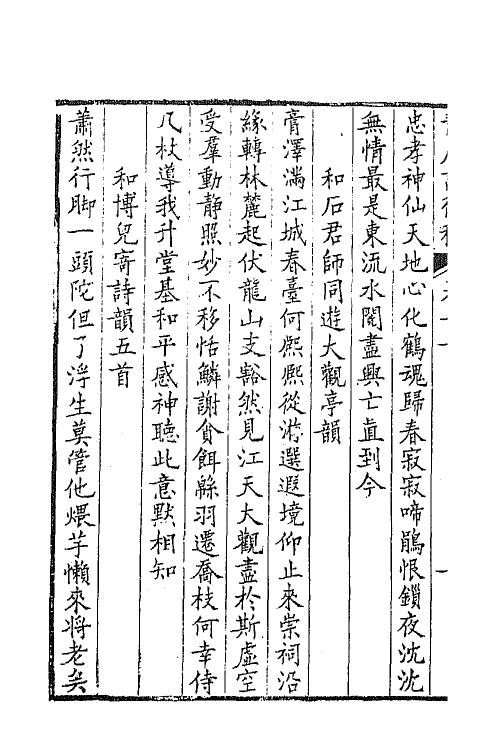 忠孝神仙天地心化鶴魂歸春寂寂啼鵑恨鎖夜沈沈
無情最是東流水閱盡興亡直到今
和石君師同遊大觀亭韻
膏澤滿江城春臺何熈熈從游選遐境仰止來崇祠沿
緣轉林麓起伏龍山支豁然見江天大觀盡於斯虛空
受羣動靜照妙不移恬鱗謝貪餌緜羽遷喬枝何幸侍
几杖導我升堂基和平感神聽此意默相知
和博兒寄詩韻五首
蕭然行脚一頭陀但了浮生莫管他煨芋懶來將老矣